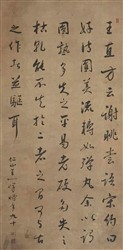 王直方云謝朓嘗語沈約曰
好詩圓美流轉如彈丸余以謂
圓熟多失之平易老硬多失之
枯乾能不失於二者之間可与古
之作者並驅耳